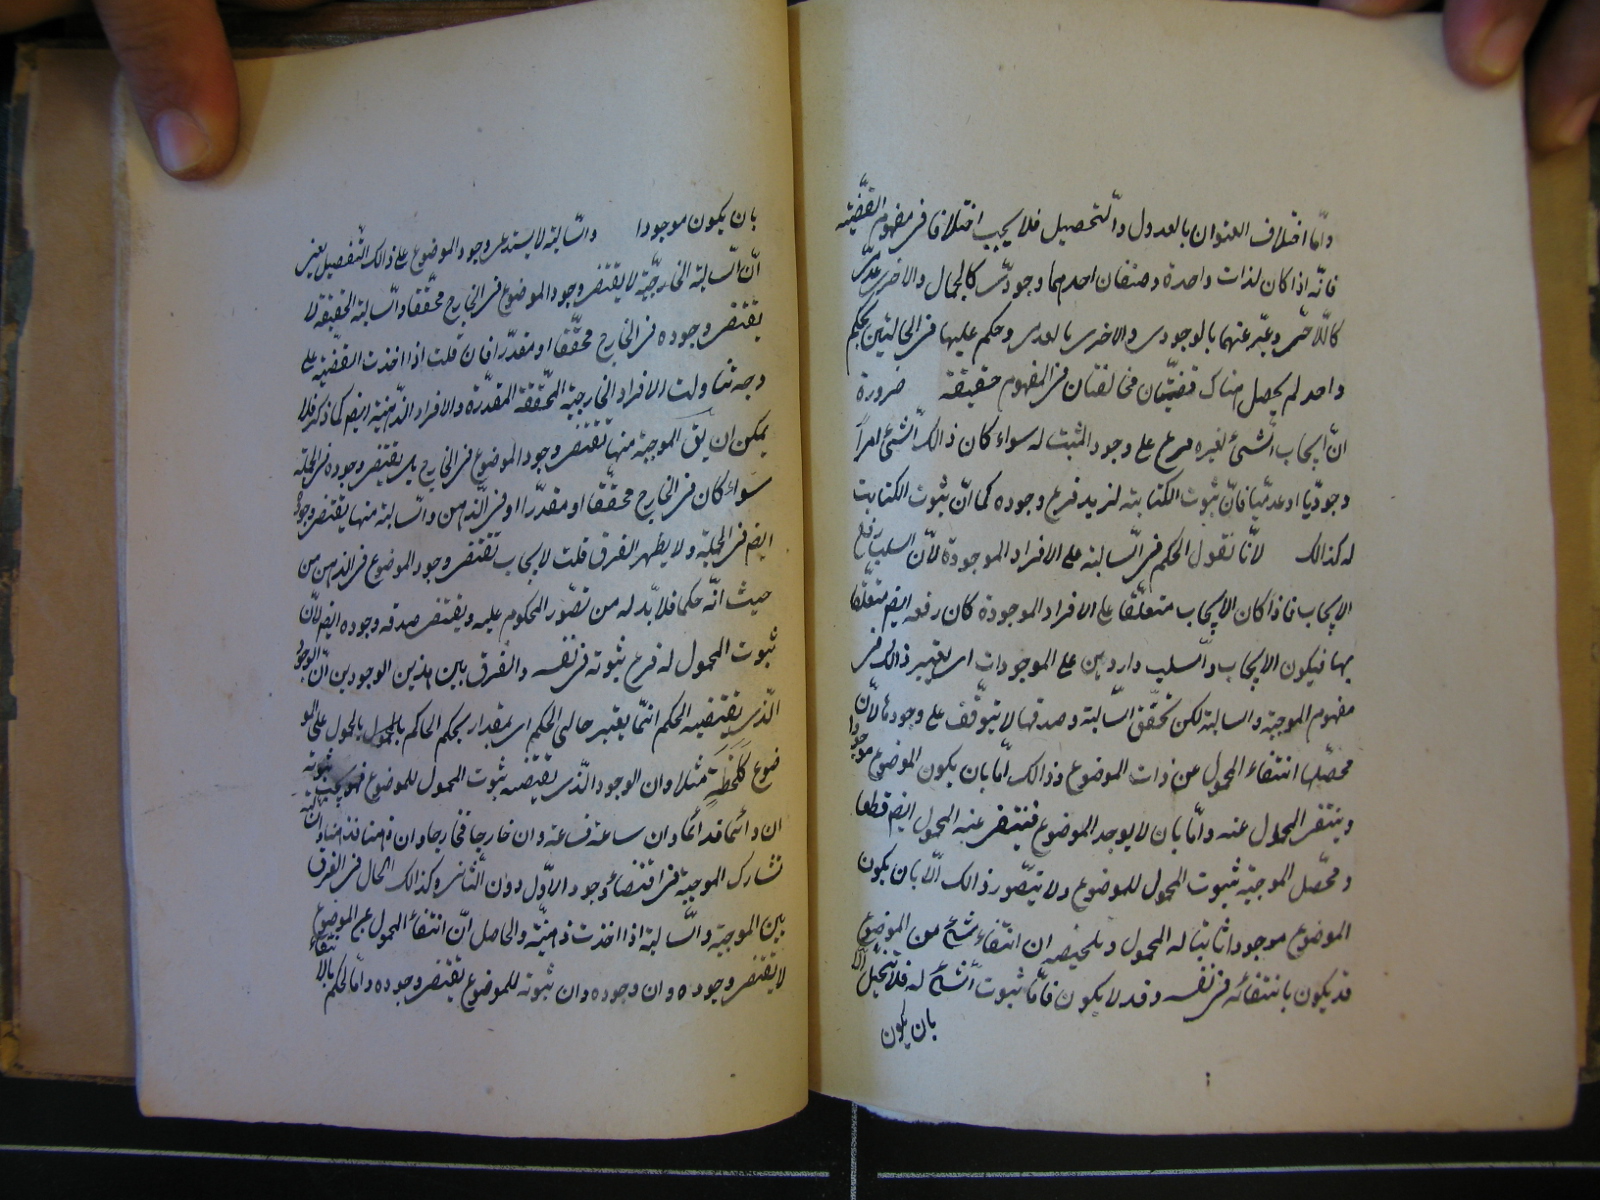 وامّا اختلاف العنوان بالعدول والتحصيل فلا يجب اختلافا فى مفهوم القضيّه
فانّه اذا كان لذات واحدة وصفان احدهما وجودىّ كالجمال والاخرى عدمىّ
كاللا حى وعبّر عنهما بالوجودى والاخرى بالعدمى وحكم عليها فى الحالتين بحكم
واحد لم يحصل هناك قضيّتان مخالفتان فى المفهوم حقيقة ضرورة
انّ ايجاب الشئ لغيره فرع على وجود المثبت له سواء كان ذالك الشئ امراً
وجوديّا او عدميّا فانّ ثبوت الكتابة لزيد فرع وجوده كما انّ ثبوت الكتابت
له كذالك لانّا نقول الحكم فى السّالبة على الافراد الموجودة لانّ السلب رفع
الايجاب فاذا كان الايجاب متعلّقا على الافراد الموجودة كان رفعه ايضا متعلّقا
بها فيكون الايجاب والسّلب واردين على الموجودات اى يعتبر ذالك فى
مفهوم الموجبة والسالبة لكن تحقّق السّالبة وصدقها لا يتوقّف على وجودها لانّ
محصّلها انتفاء المحمول عن ذات الموضوع وذالك امّا بان يكون الموضوع موجودا
وينتفى المحمول عنه وامّا بان لا يوجد الموضوع فينتفى عنه المحمول ايضا قطعا
ومحصّل الموجبة ثبوت المحمول للموضوع ولا يتصّور ذالك الّا بان يكون
الموضوع موجودا ثابتا له المحمول وتلخيصه ان انتفاء شئ من الموضوع
قد يكون بانتفائه فى نفسه وقد لا يكون فامّا ثبوت الشئ له فلا يتخيّل الّا
بان يكون
بان يكون موجودا والسّالبة لا يستدعى وجود الموضوع على ذالك التّفصيل يعنى
انّ السّالبة الخارجيّة لا يقتضى وجود الموضوع فى الخارج محقّقا والسّالبة الحقيقة لا
يقتضى وجوده فى الخارج محقّقا او مقدّرا فان قلت اذا اخذت القضيّة على
وجه تناولت الافراد الخارجيّة المحّققة المقدّرة والافراد الذهنية ايضا كما ذكر فلا
يمكن ان يق الموجبة منها تقتضى وجود الموضوع فى الخارج بل يقتضى وجوده فى الجملة
سواء كان فى الخارج محقّقا او مقدّرا او فى الذّهن والسّالبة منها يقتضى وجوده
ايضا فى الجملة ولا يظهر الفرق قلت لايجاب تقتضى وجود الموضوع فى الذهن من
حيث انّه حكم فلا بدّ له من تصّور المحكوم عليه ويقتضى صدقه وجوده ايضا لانّ
ثبوت المحمول له فرع ثبوته فى نفسه والفرق بين هذين الوجودين انّ الوجود
الّذى يقتضيه الحكم انّما يعتبر حال الحكم اى بمقدار يحكم الحاكم بالمحمول على المو
ضوع كلحظة مثلا وان الوجود الّذى يقتضيه ثبوت المحمول للموضوع فهو بحسب ثبوته
ان دائما فدائما وان ساعة فساعة وان خارجا فخارجا وان ذهنا فذهنا والسّالبة
تشارك الموجبة فى اقتضاء وجود الاوّل دون الثّانى وكذالك الحال فى الفرق
بين الموجبة والسّالبة اذا اخذت ذهنيّة والحاصل انّ انتفاء المحمول عن الموضوع
لا يقتضى وجوده وان وجوده وان ثبوته للموضوع يقتضى وجوده وامّا الحكم بالانتفاء